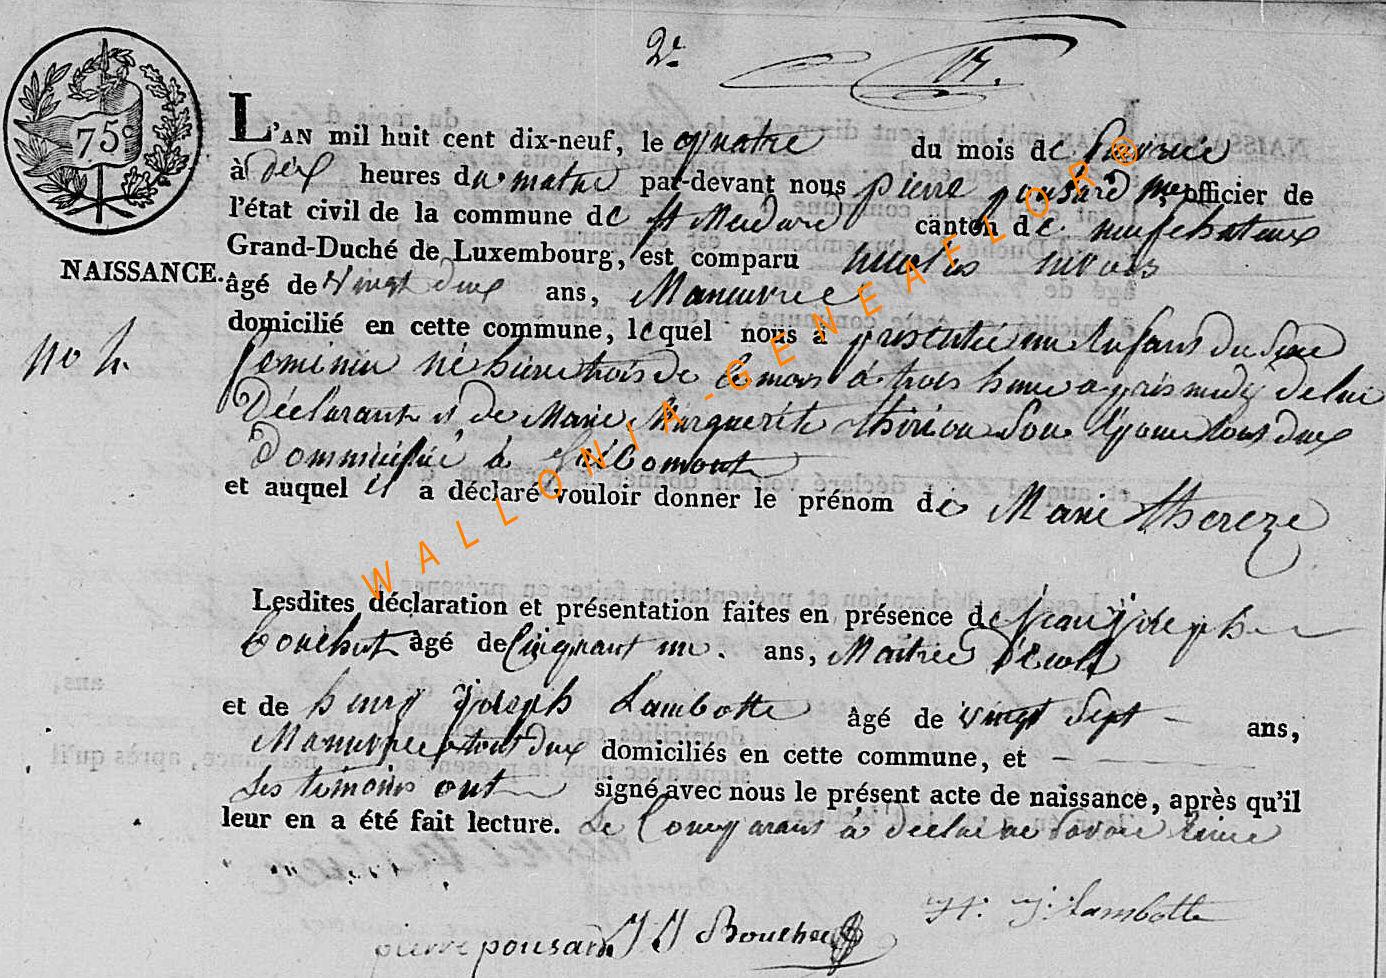 2e.
75c
L'AN mil huit cent dix-neuf, le quatre du mois de fevrier
à dix heures du matin par-devant nous pierre pousard officier de
l'état civil de la commune de St Medard canton de neufchateaux
Grand-Duché de Luxembourg, est comparu nicolas
NAISSANCE.
âgé de vingt deux ans, Maneuvre
domicilié en cette commune, lequel nous a presentée un Enfans du Sexe
no 4.
feminin né hiere trois de ce mois à trois heure apris midi de lui
Déclarant et de Marie Marguerite thirion Son Epouse tous deux
Dommicilié à
et auquel il a déclaré vouloir donner le prénom de Marie thereze
Lesdites déclaration et présentation faites en présence de Jean Joseph
Bouchut âgé de Cinquant un. ans, Maitre D'Ecole
et de henry Joseph Lambotte âgé de vingt Sept ans,
Maneuvre tout deux domiciliés en cette commune, et
Les temoins ont signé avec nous le présent acte de naissance, après qu'il
leur en a été fait lecture. Le Comparans à declaré ne Savoir
H. J. Lambotte
pierre pousard J J Bouchut
WALLONIA-GENEAFLOR®